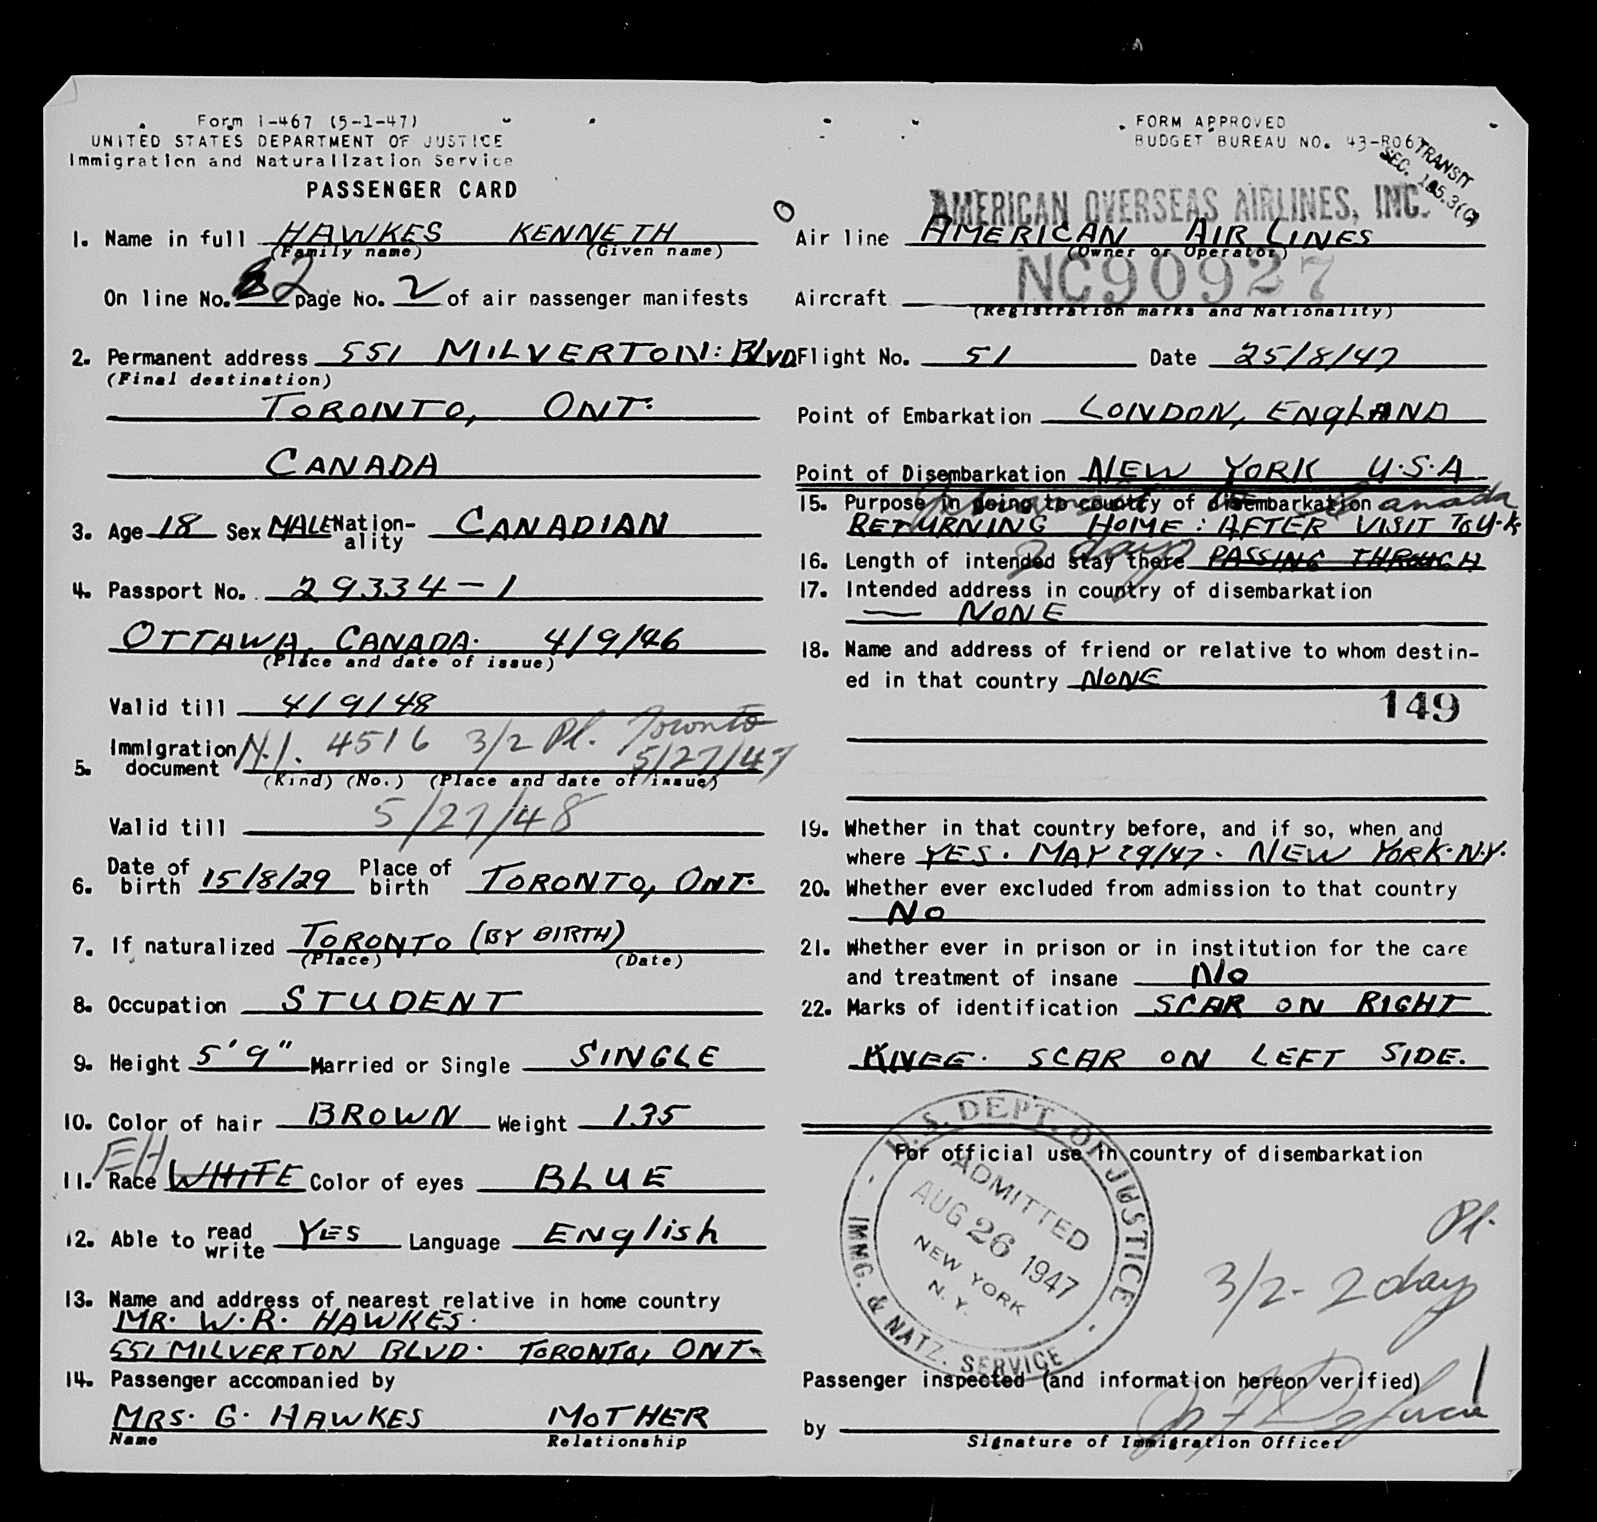 Form I-467 (5-1-47)
UNITED STATES DEPARTMENT OF JUSTICE
Immigration and Naturalization Service
PASSENGER CARD
1. Name in full HAWKES KENNETH
(Family name) (Given name)
On line No. 2 page No. 2 of air passenger manifests
2. Permanent address 551 MILVERTON: BLVD
(Final destination)
TORONTO, ONT.
CANADA
3. Age 18 Sex MALE Nation-ality CANADIAN
4. Passport No. 29334-1
OTTAWA, CANADA. 4/9/46
(Place and date of issue)
Valid till 4/9/48
5. Immigration document N.I. 4516 3/2 Pl. Toronto 5/27/47
(Kind) (No.) (Place and date of issue)
Valid till 5/27/48
6. Date of birth 15/8/29 Place of birth TORONTO, ONT.
7. If naturalized TORONTO (BY BIRTH)
(Place) (Date)
8. Occupation STUDENT
9. Height 5'9" Married or Single SINGLE
10. Color of hair BROWN Weight 135
EH
11. Race WHITE Color of eyes BLUE
12. Able to read write YES Language ENglish
13. Name and address of nearest relative in home country
MR. W.R. HAWKES.
551 MILVERTON BLVD. TORONTO, ONT.
14. Passenger accompanied by
MRS. G. HAWKES MOTHER
Name Relationship
FORM APPROVED
BUDGET BUREAU NO. 43-R06
TRANSIT
SEC.
AMERICAN OVERSEAS AIRLINES, INC.
Air line AMERICAN AIR LINES
(Owner or Operator)
Aircraft NC90927
(Registration marks and Nationality)
Flight No. 51 Date 25/8/47
Point of Embarkation LONDON, ENglAND
Point of Disembarkation NEW YORK U.S.A
15. Purpose in going to country of disembarkation Canada
RETURNING HOME: AFTER VISIT TO U.K.
16. Length of intended stay there 2 days PASSING THROUGH
17. Intended address in country of disembarkation
— NONE
18. Name and address of friend or relative to whom destin-
ed in that country NONE
149
19. Whether in that country before, and if so, when and
where YES. MAY 29/47. NEW YORK. N.Y.
20. Whether ever excluded from admission to that country
NO
21. Whether ever in prison or in institution for the care
and treatment of insane NO
22. Marks of identification SCAR ON RIGHT
KNEE. SCAR ON LEFT SIDE.
For official use in country of disembarkation
U.S. DEPT. OF JUSTICE
ADMITTED
AUG 26 1947
NEW YORK
N.Y.
IMMG. & NATZ. SERVICE
Pl.
3/2 - 2 days
Passenger inspected (and information hereon verified)
by
Signature of Immigration Officer